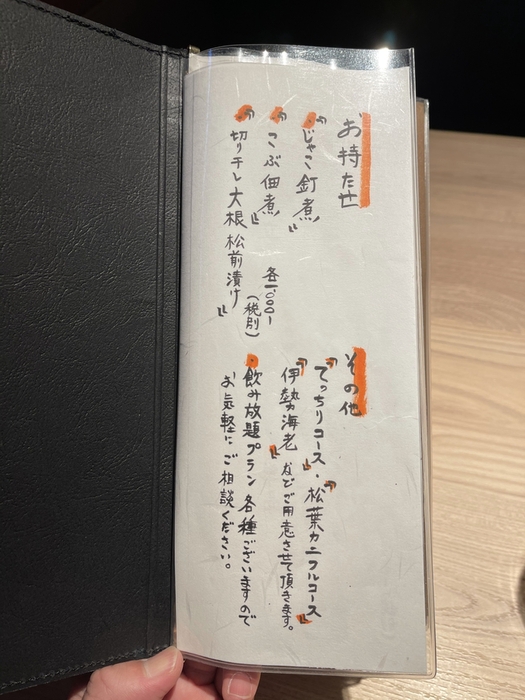 お持たせ
『じゃこ釘煮』
『こぶ佃煮』
『切り干し大根松前漬け』
各1,000-
(税別)
その他
『てっちりコース』・『松葉カニフルコース』
『伊勢海老』などご用意させて頂きます。
飲み放題プラン各種ございますので
お気軽にご相談ください。